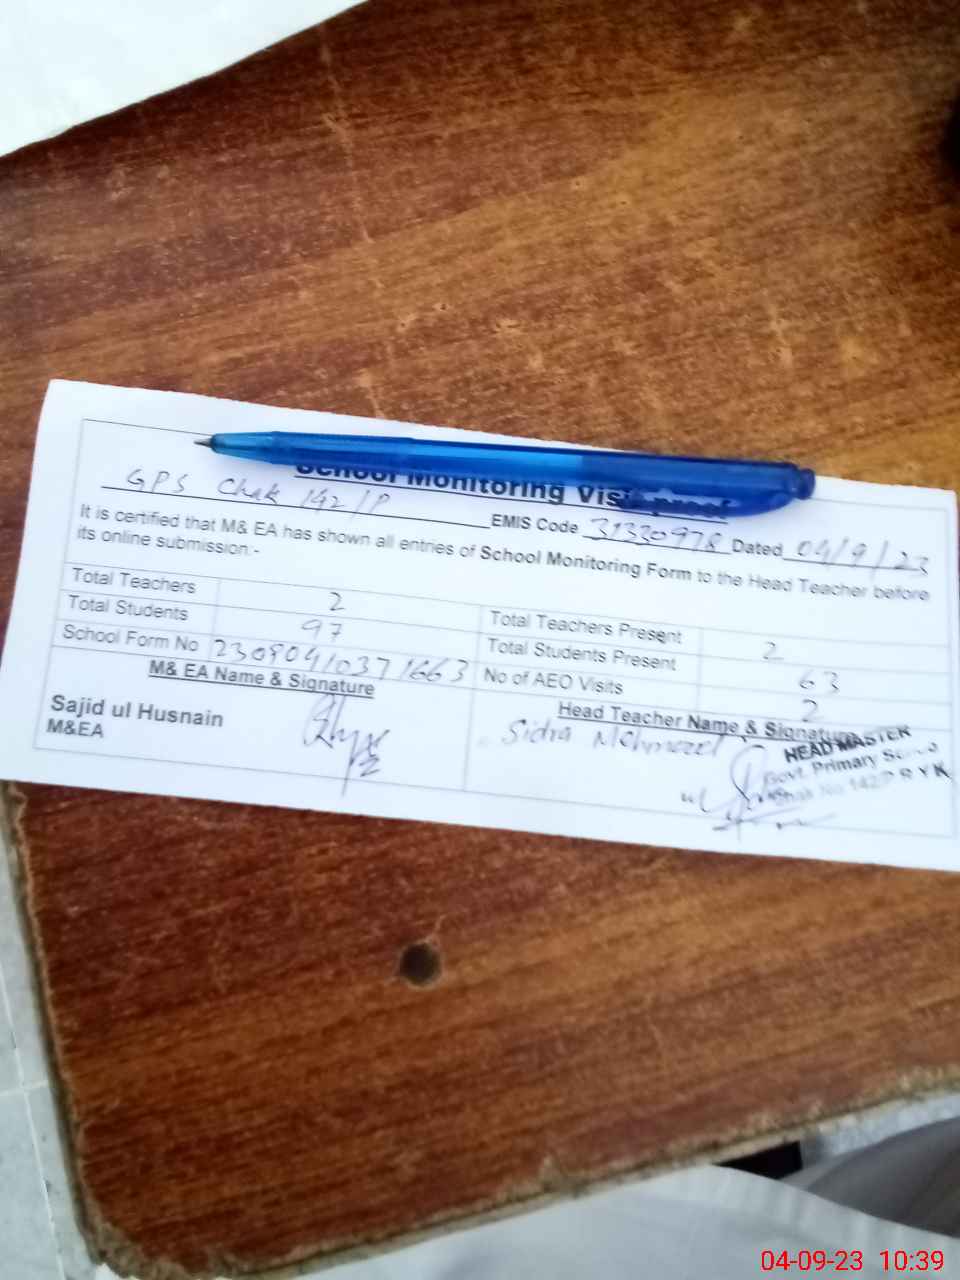 School Monitoring Visit proof
GPS Chak 142/P EMIS Code 31330978 Dated 04/9/23
It is certified that M& EA has shown all entries of School Monitoring Form to the Head Teacher before
its online submission:-
Total Teachers 2 Total Teachers Present 2
Total Students 97 Total Students Present 63
School Form No 23090410371663 No of AEO Visits 2
M& EA Name & Signature Head Teacher Name & Signature
Sajid ul Husnain Sidra Mehmood
M&EA
HEAD MASTER
Govt. Primary School
Chak No 142/P R Y K
04-09-23 10:39